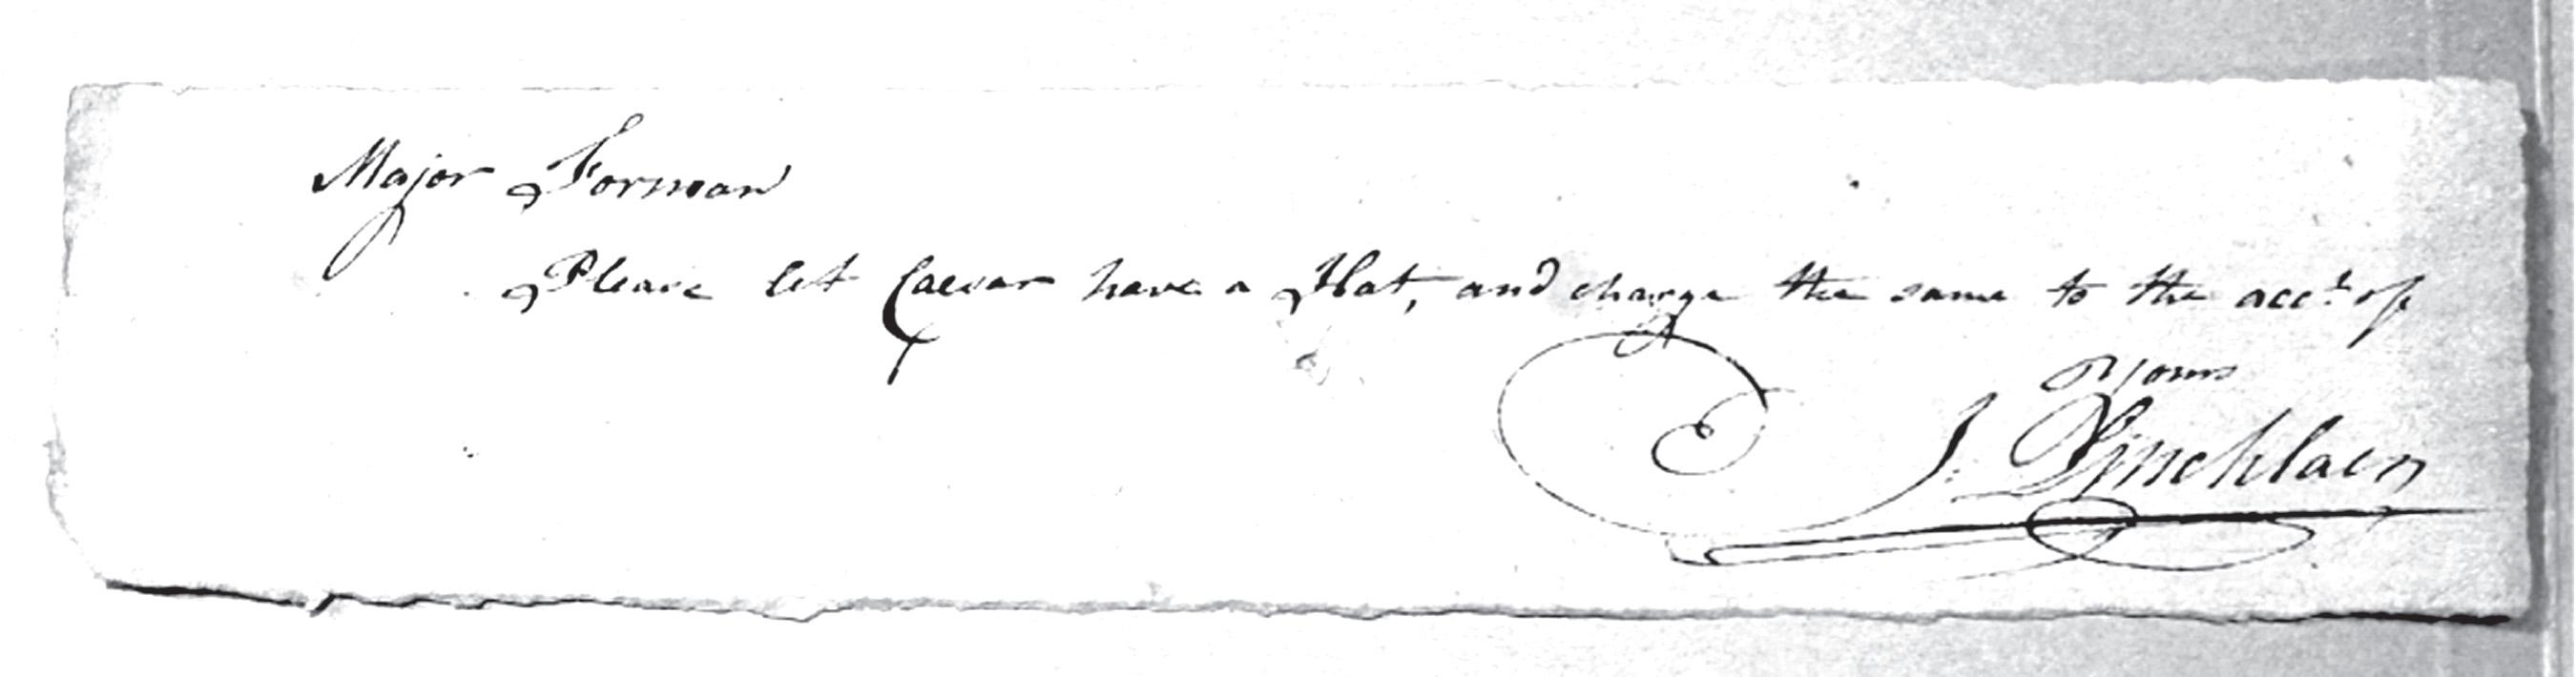 Major Forman
Please let Caesar have a Hat, and charge the same to the acct. of
Yours
J. Lincklaen